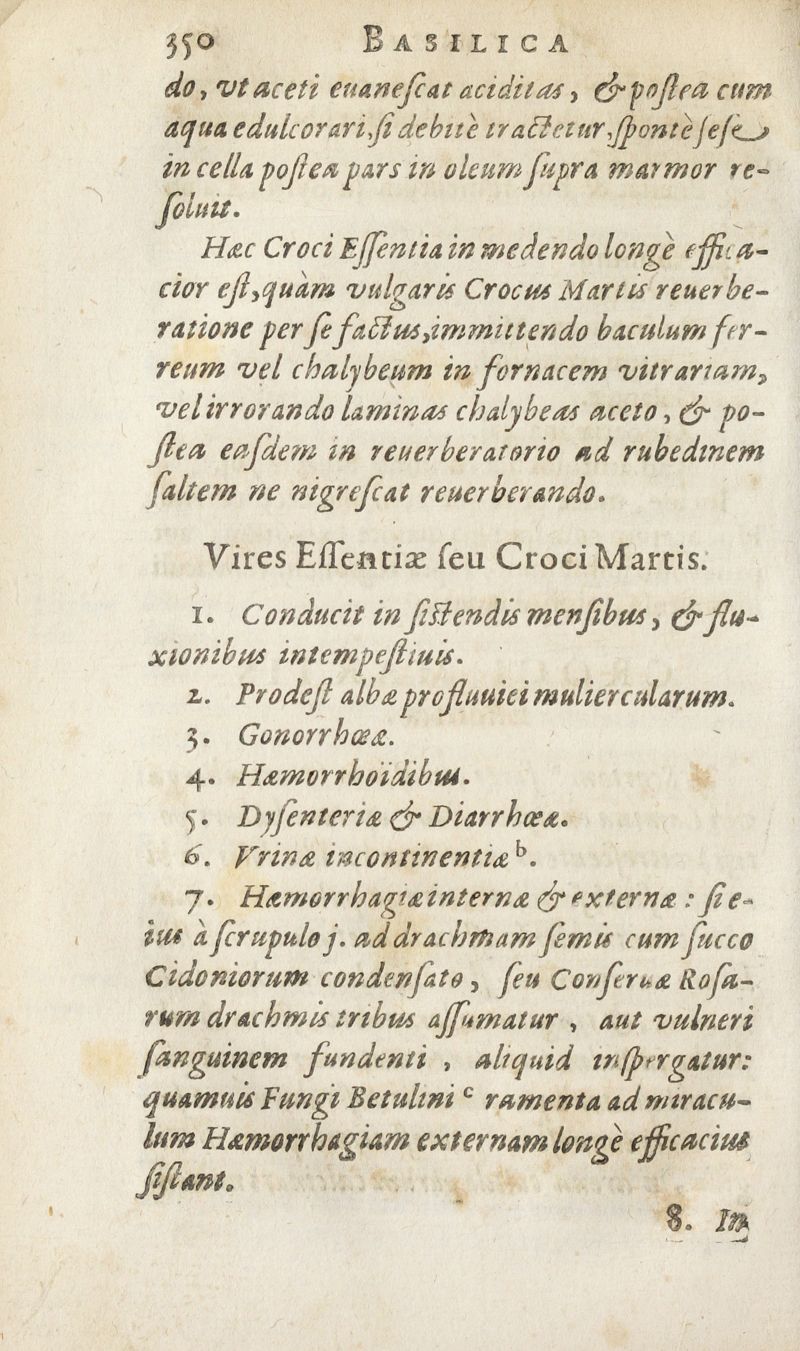 350 BASILICA
do, vt aceti euaneſcat aciditas, & poſtea cum
aqua edulcorari, ſi debitè tractetur, ſpontè ſeſe
in cella poſtea pars in oleum ſupra marmor re-
ſoluit.
Hæc Croci Eſſentia in medendo longè effica-
cior eſt, quàm vulgaris Crocus Martis reuerbe-
ratione per ſe factus, immittendo baculum fer-
reum vel chalybeum in fornacem vitrariam,
vel irrorando laminas chalybeas aceto, & po-
ſtea eaſdem in reuerberatorio ad rubedinem
ſaltem ne nigreſcat reuerberando.
Vires Eſſentiæ ſeu Croci Martis.
1. Conducit in ſiſtendis menſibus, & flu-
xionibus intempeſtiuis.
2. Prodeſt albæ profluuiei muliercularum.
3. Gonorrhœæ.
4. Hæmorrhoïdibus.
5. Dyſenteriæ & Diarrhœæ.
6. Vrinæ incontinentiæ b.
7. Hæmorrhagiæ internæ & externæ : ſi e-
ius à ſcrupulo j. ad drachmam ſemis cum ſucco
Cidoniorum condenſato, ſeu Conſeruæ Roſa-
rum drachmis tribus aſſumatur , aut vulneri
ſanguinem fundenti , aliquid inſpergatur:
quamuis Fungi Betulini c ramenta ad miracu-
lum Hæmorrhagiam externam longè efficacius
ſiſtant.
8. In